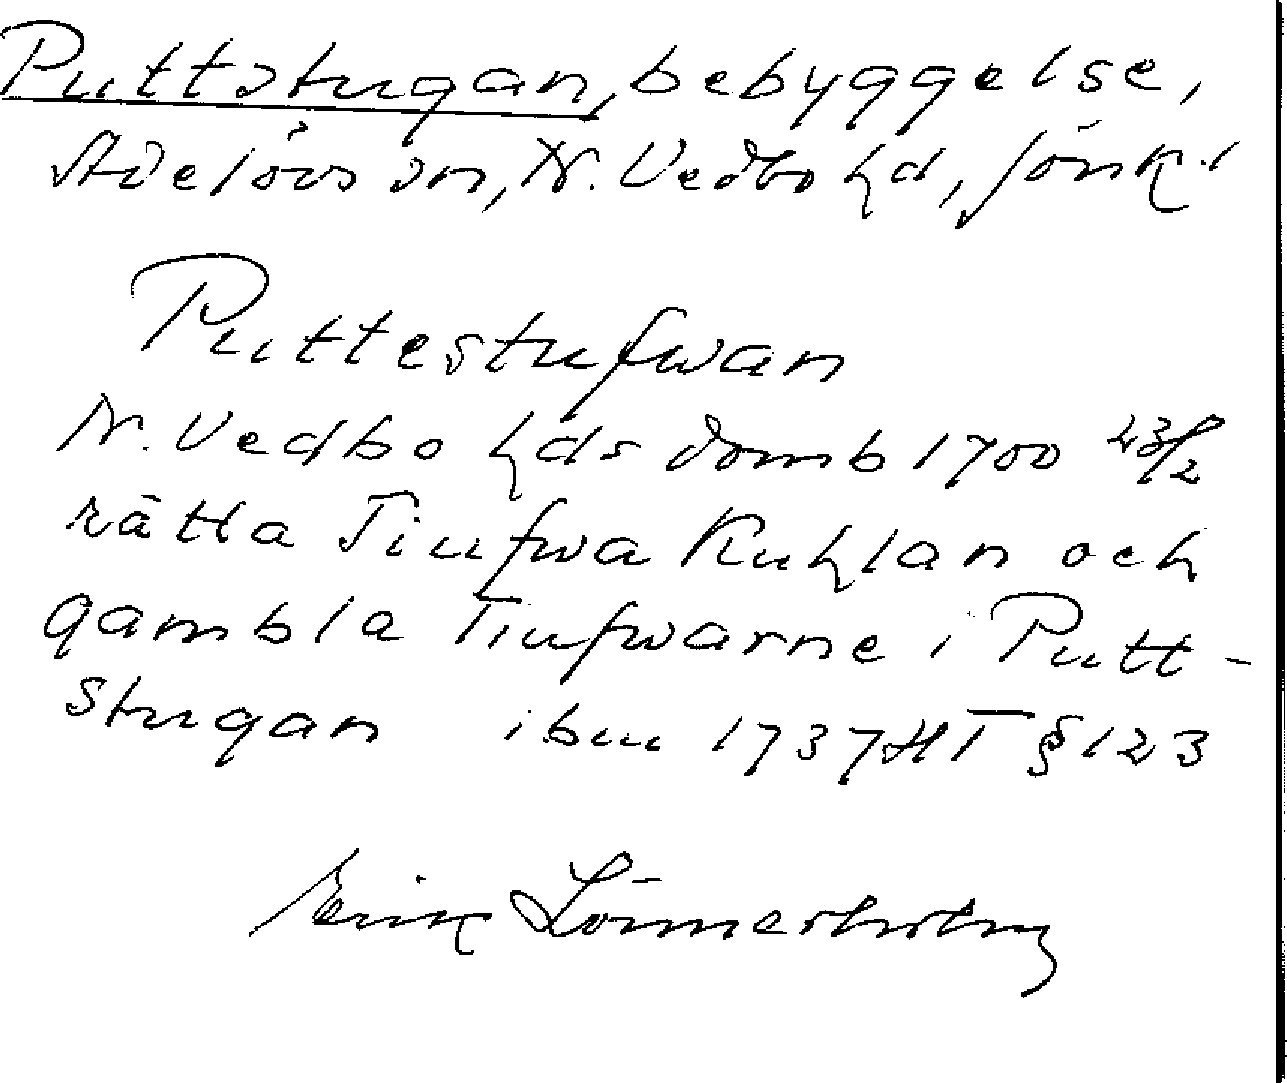 Puttstugan, bebyggelse,
Adelövs sn, N. Vedbo hd, Jönk. l
Puttestufwan
N. Vedbo hds domb 1700 23/2
rätta Tiufwa Kuhlan och
gambla Tiufwarne i Putt-
stugan ibm 1737 HT § 123
Erik Lönnerholm